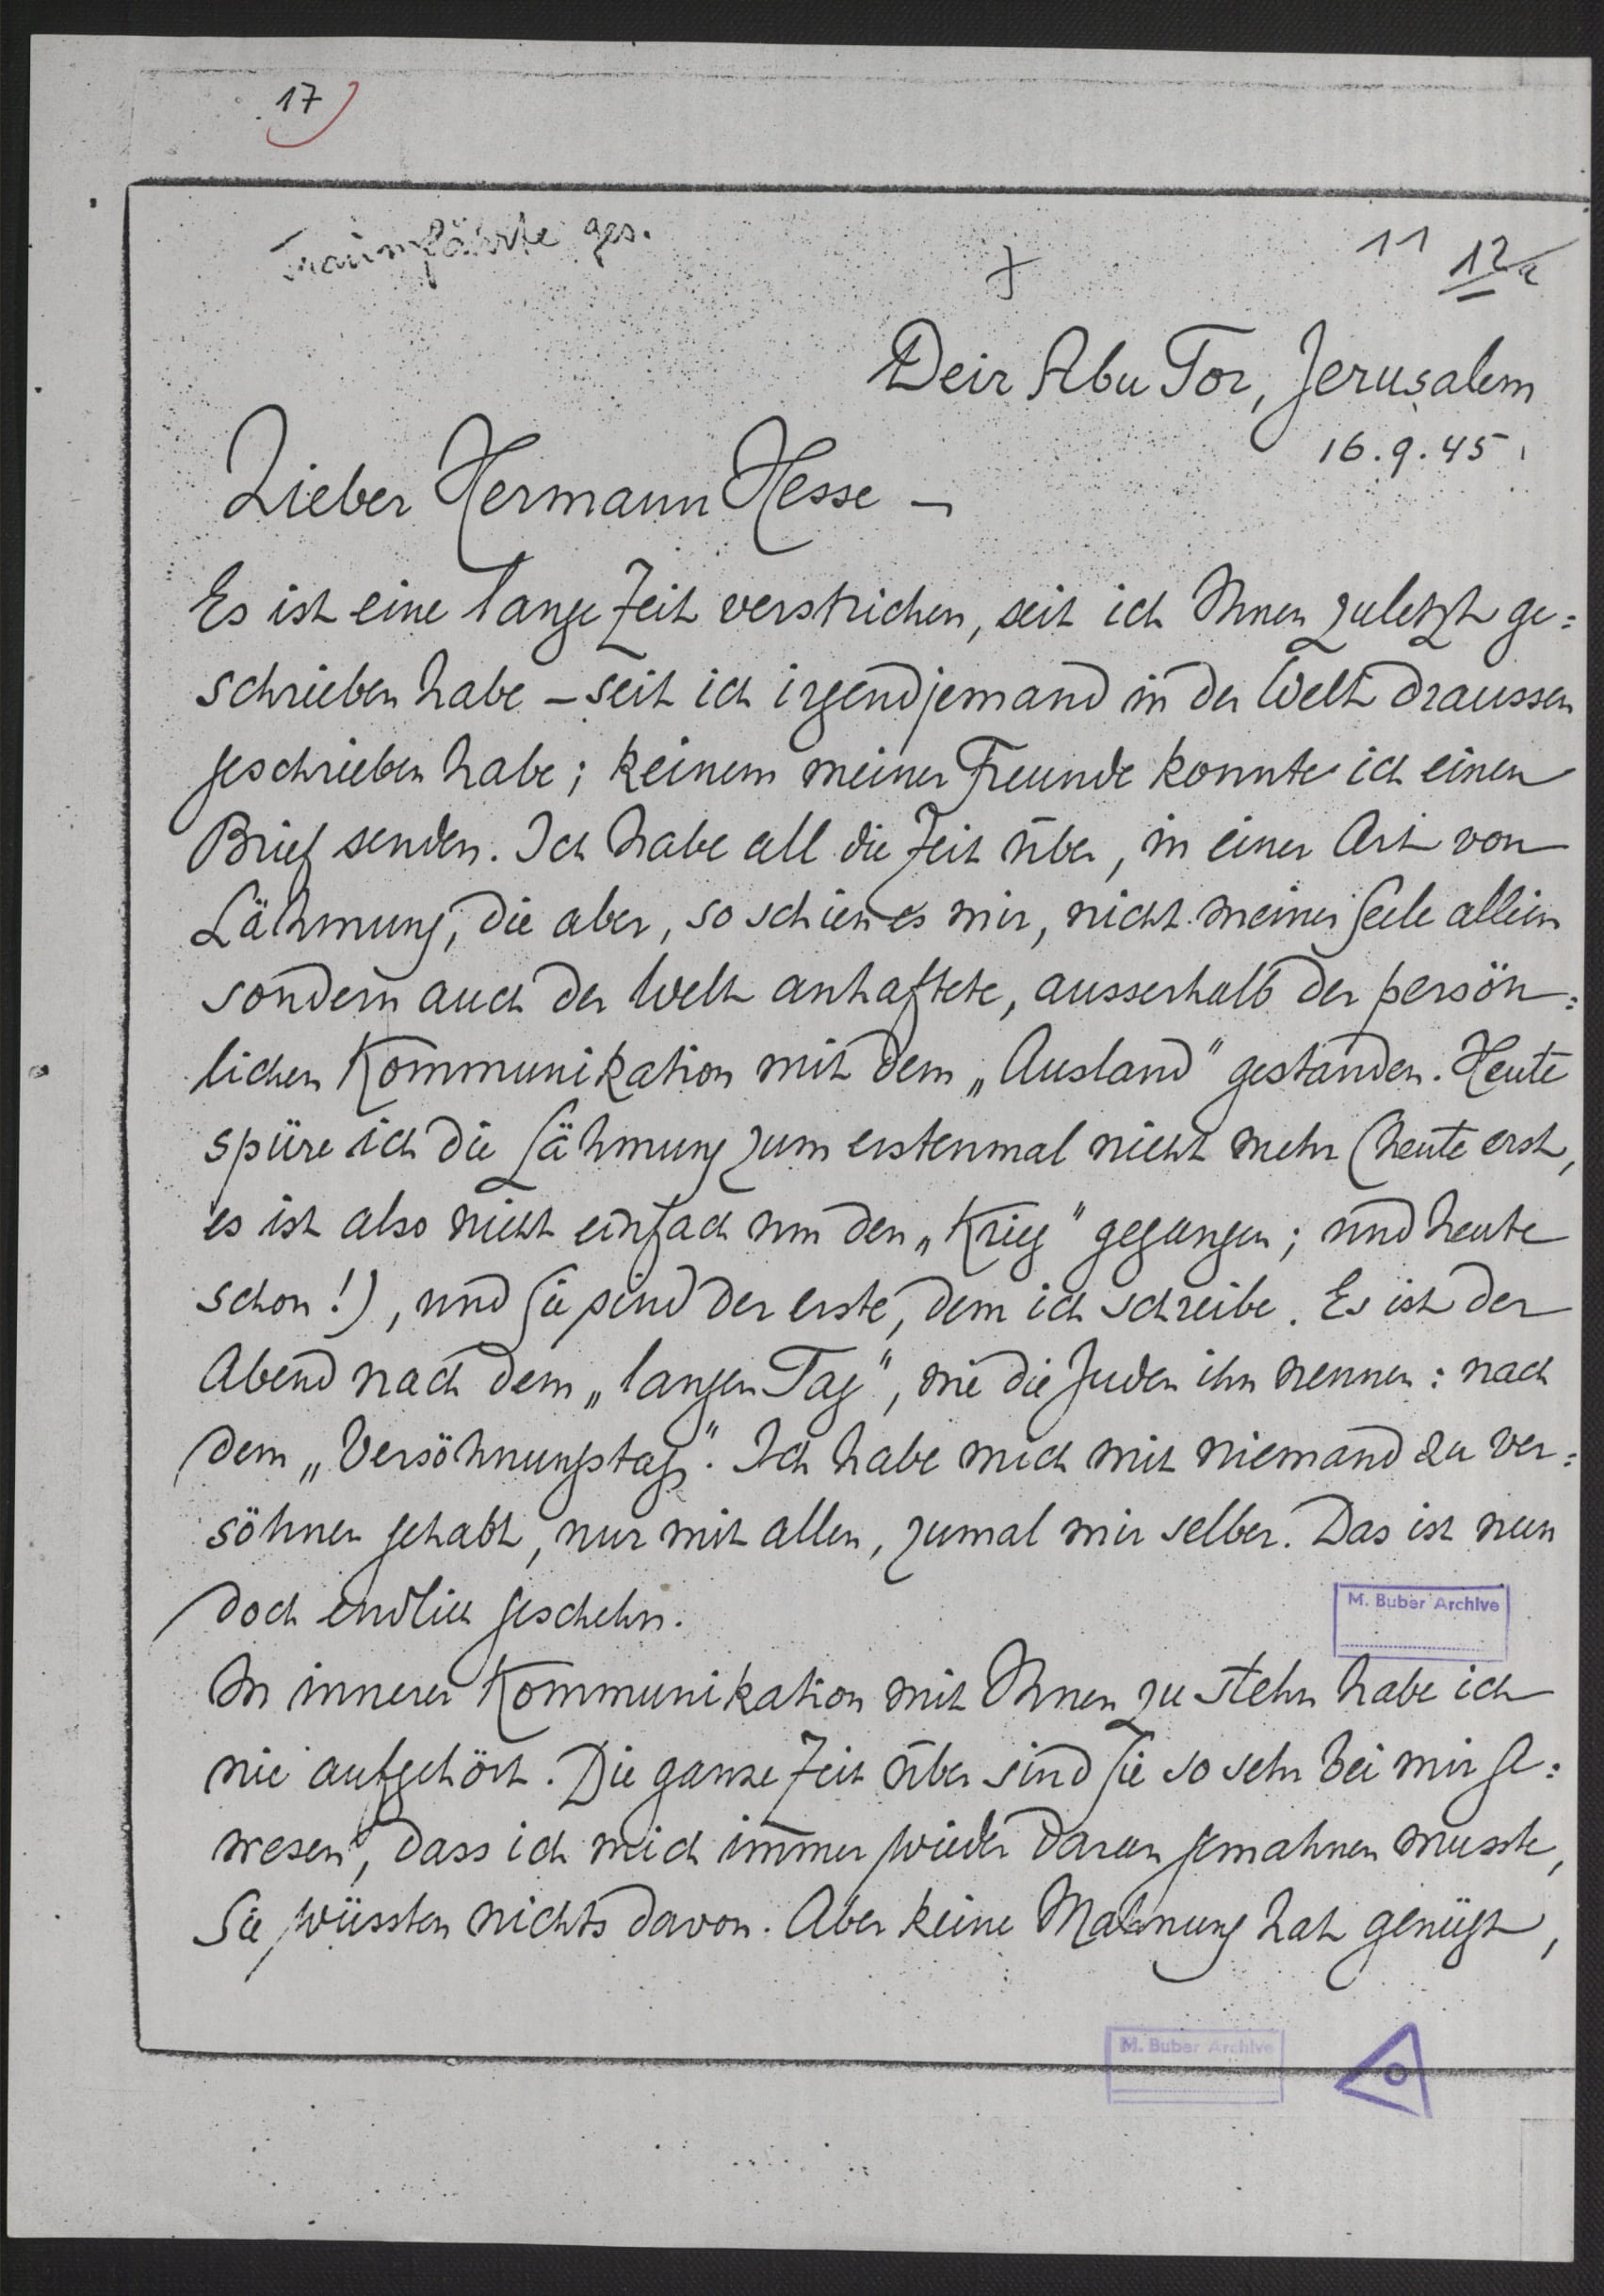 17
Traumfährte ges.
11 12a
Deir Abu Tor, Jerusalem
16.9.45
Lieber Hermann Hesse –
Es ist eine lange Zeit verstrichen, seit ich Ihnen zuletzt ge=
schrieben habe – seit ich irgendjemand in der Welt draussen
geschrieben habe; keinem meiner Freunde konnte ich einen
Brief senden. Ich habe all die Zeit über, in einer Art von
Lähmung, die aber, so schien es mir, nicht meiner Seele allein
sondern auch der Welt anhaftete, ausserhalb der persön=
lichen Kommunikation mit dem „Ausland" gestanden. Heute
spüre ich die Lähmung zum erstenmal nicht mehr (heute erst,
es ist also nicht einfach um den „Krieg" gegangen; und heute
schon!), und Sie sind der erste, dem ich schreibe. Es ist der
Abend nach dem „langen Tag", wie die Juden ihn nennen: nach
dem „Versöhnungstag". Ich habe mich mit niemand zu ver=
söhnen gehabt, nur mit allen, zumal mir selber. Das ist nun
doch endlich geschehn.
M. Buber Archive
In innerer Kommunikation mit Ihnen zu stehn habe ich
nie aufgehört. Die ganze Zeit über sind Sie so sehr bei mir ge=
wesen, dass ich mich immer wieder daran gemahnen musste,
Sie wüssten nichts davon. Aber keine Mahnung hat genügt,
M. Buber Archive